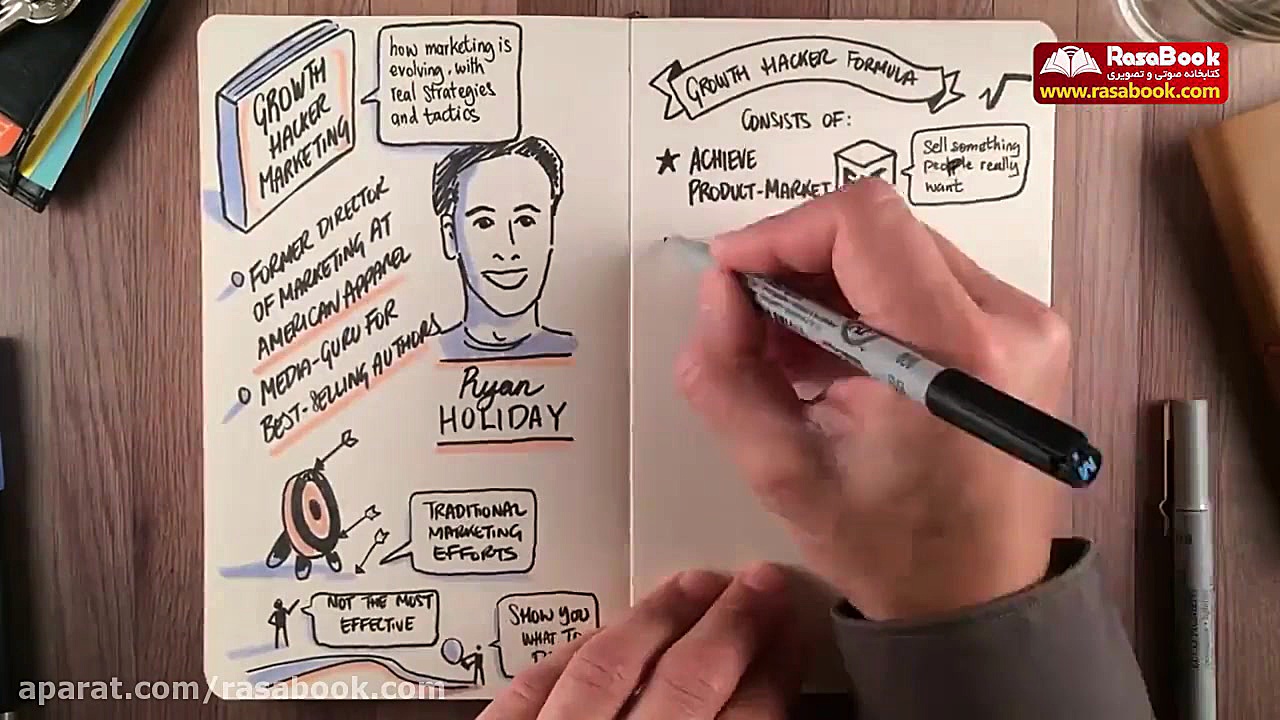 GROWTH
HACKER
MARKETING
how marketing is
evolving, with
real strategies
and tactics
FORMER DIRECTOR
OF MARKETING AT
AMERICAN APPAREL
MEDIA-GURU FOR
BEST-SELLING AUTHORS
Ryan
HOLIDAY
TRADITIONAL
MARKETING
EFFORTS
NOT THE MOST
EFFECTIVE
SHOW YOU
WHAT TO
GROWTH HACKER FORMULA
CONSISTS OF:
★ ACHIEVE
PRODUCT-MARKET
Sell something
people really
want
RasaBook
کتابخانه صوتی و تصویری
www.rasabook.com
aparat.com/rasabook.com